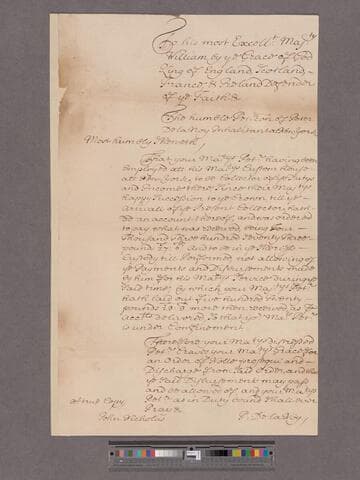 To his most Excell.t Maj.ty
William by ye Grace of God
King of England Scotland
France & Ireland Defender
of ye Faith &
The humble Peticon of Peter
DelaNoy Inhabitant at New York
Most humbly Sheweth
That your Ma.tys Pet.r having been
employed att his Ma.tys Custom house
att New York, to be Collector of ye Dutys
and Incomes there since their Ma.tys
happy Succession to ye Crown till ye
arrivall of ye present Collector, hath
made an account thereof, and was ordered
to pay what was received being four
Thousand five hundred seventy three
pound and to be in the Sheriffs
Custody till performed, not allowing of
ye Payments and Disbursements made
by him for his Ma.tys Service during ye
said time, by which your Ma.tys Pet.r
hath laid out five hundred twenty
pounds more then received as p
acc.ts delivered So that yo.r Ma.tys Pet.r
is under Confinement
Therefore your Ma.tys distressed
Pet.r craves your Ma.tys Grace for
an order of Nolle prosequi and
Discharge from said order and that
ye said Disbursement may pass
and be allowed of and your Ma.tys
Pet.r as in Duty bound shall ever
Pray &
a true Copy
John Nicholas
P. DelaNoy